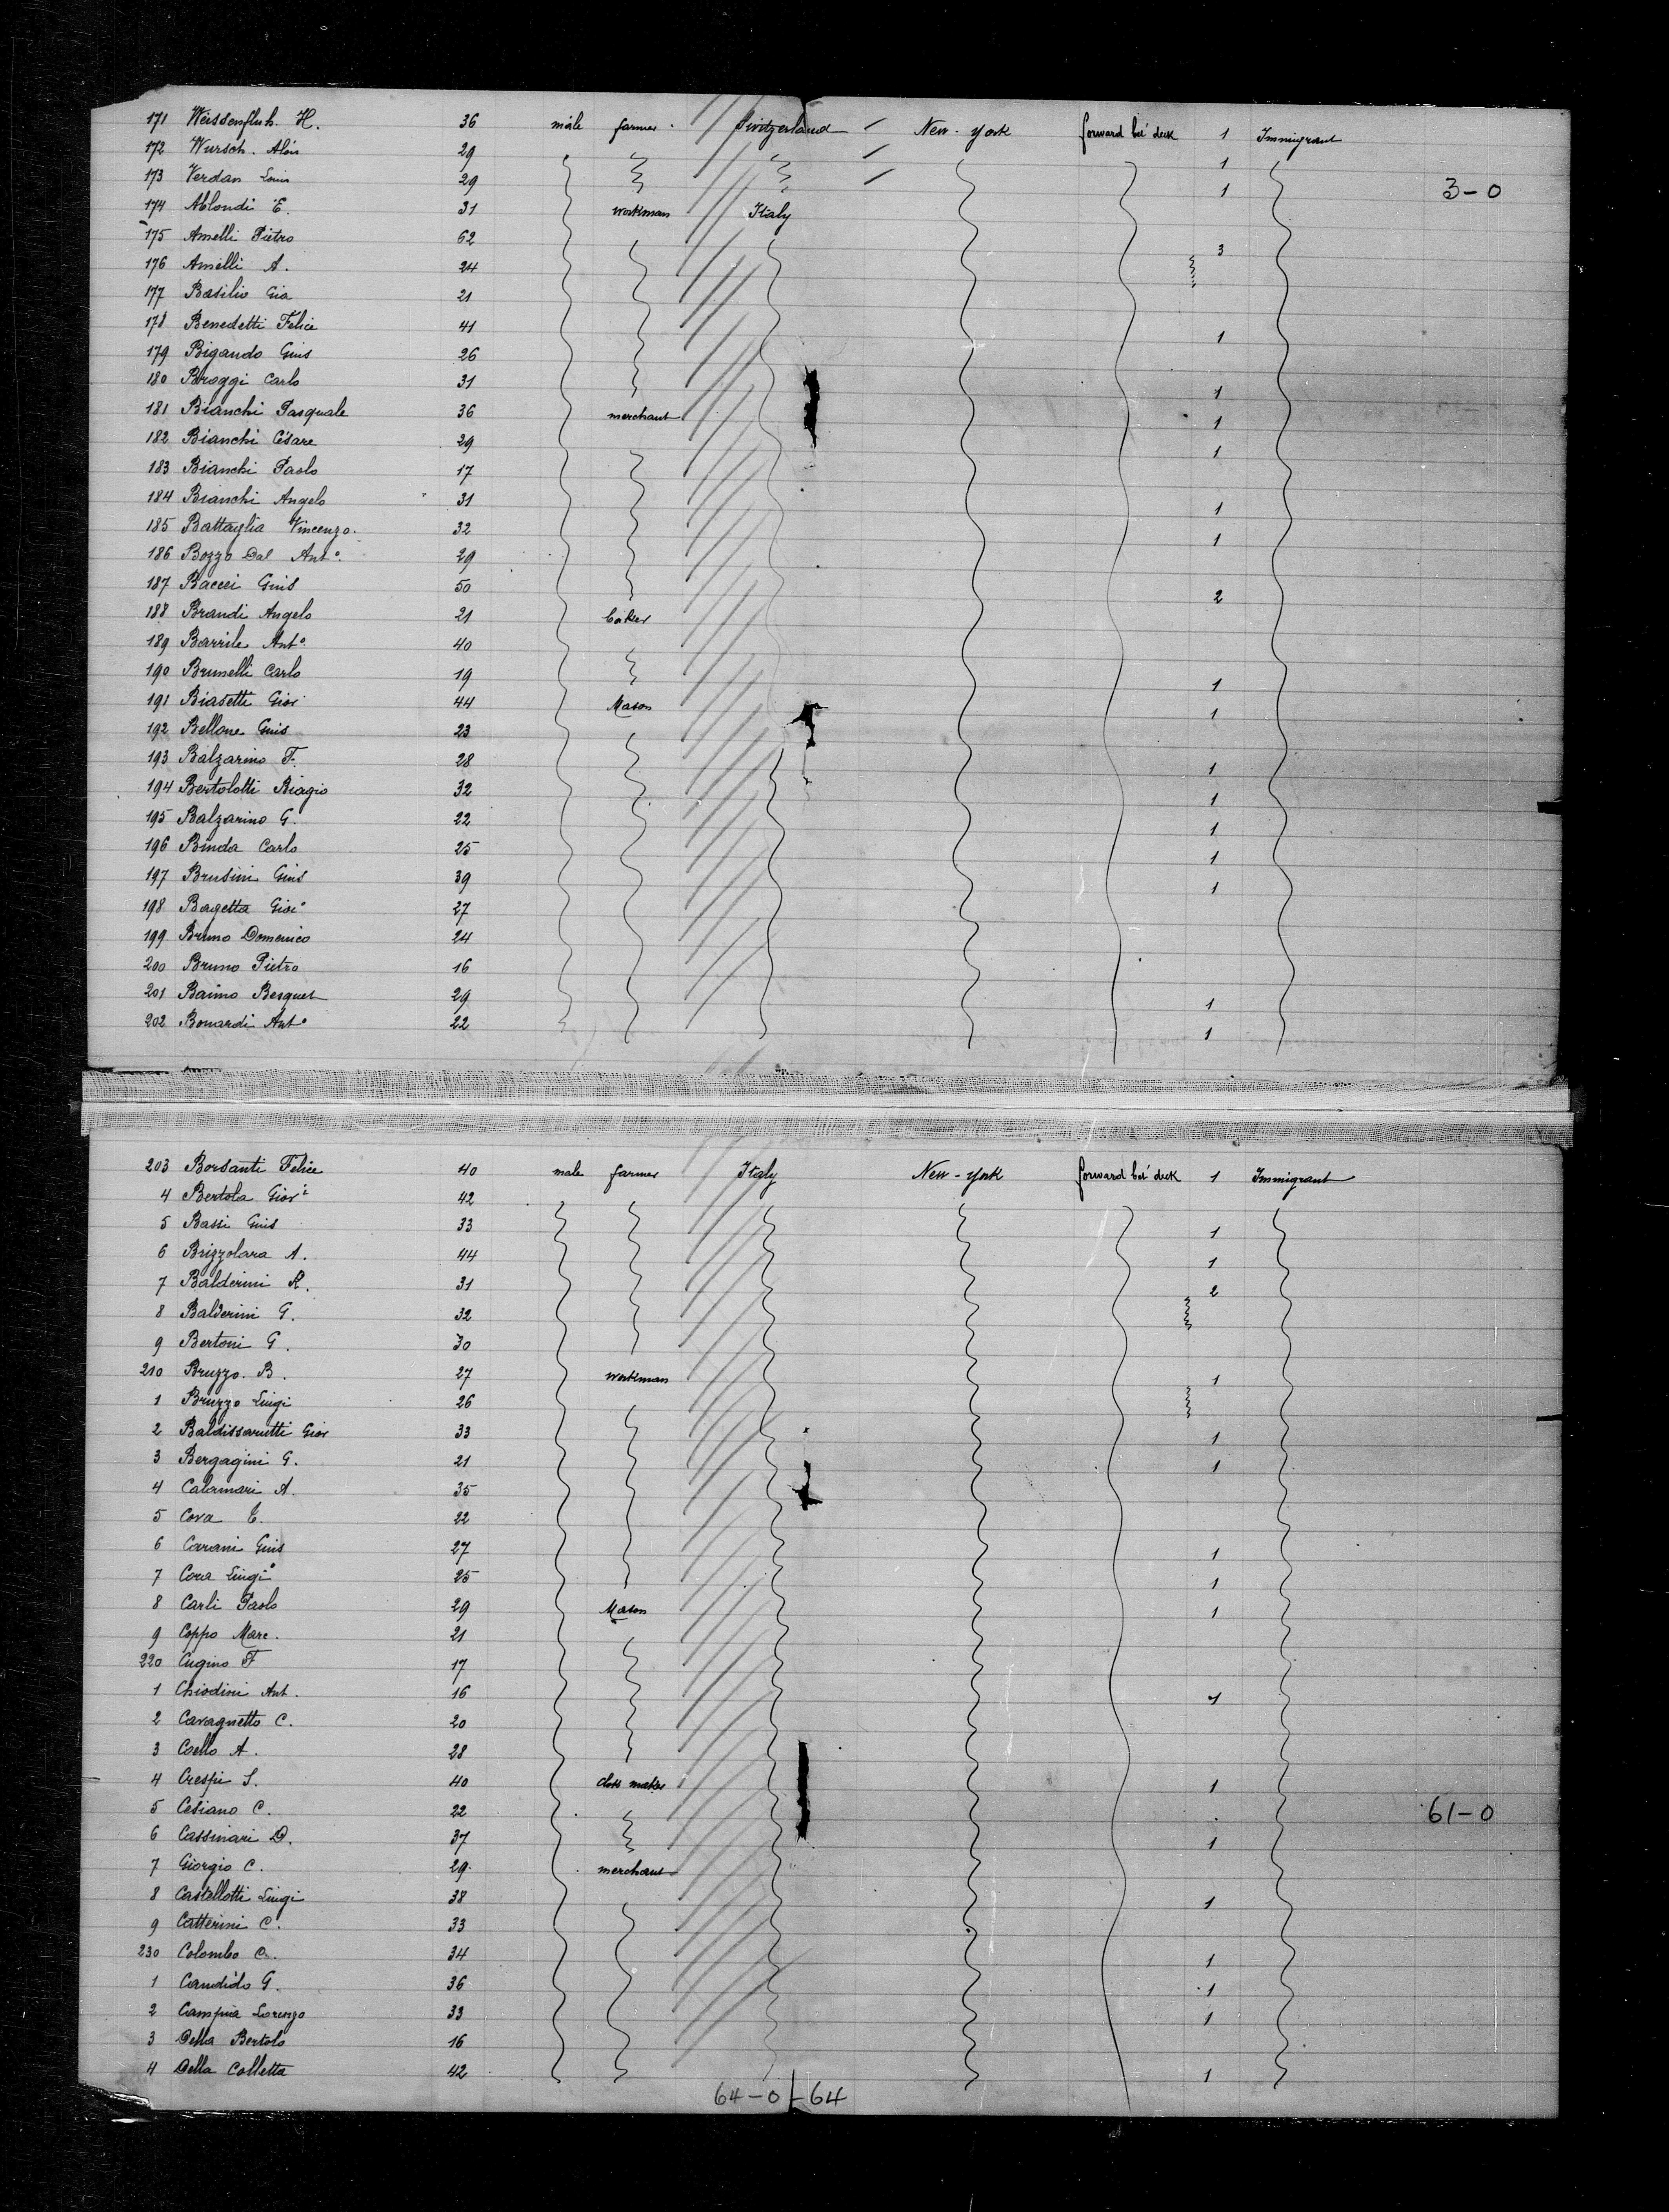 171 Weissenfluh. H. 36 male farmer Switzerland New-York forward bet' deck 1 Immigrant
172 Wursch. Aloïs 29 1
173 Verdan Louis 29 1 3-0
174 Ablondi E. 31 workman Italy
175 Amelli Pietro 62 3
176 Amelli A. 24
177 Basilio Gia 21
178 Benedetti Felice 41 1
179 Bigando Guis 26
180 Broggi Carlo 31 1
181 Bianchi Pasquale 36 merchant 1
182 Bianchi César 29 1
183 Bianchi Paolo 17
184 Bianchi Angelo 31 1
185 Battaglia Vincenzo. 32 1
186 Bozzo Dal Ant°. 29
187 Bacci Guis 50 2
188 Brandi Angelo 21 baker
189 Barrile Ant° 40
190 Brunelli Carlo 19 1
191 Biasetti Giov 44 Mason 1
192 Bellone Guis 23
193 Balzarino F. 28 1
194 Bertolotti Biagio 32 1
195 Balzarino G. 22 1
196 Binda Carlo 25 1
197 Brusini Guis 39 1
198 Bagetta Giov° 27
199 Bruno Domenico 24
200 Bruno Pietro 16
201 Baimo Besquet 29 1
202 Bonardi Ant° 22 1
203 Borsanti Felice 40 male farmer Italy New-York forward bet' deck 1 Immigrant
4 Bertola Giovi 42
5 Bassi Guis 33 1
6 Brizzolara A. 44 1
7 Balderini R. 31 2
8 Balderini G. 32
9 Bertoni G. 30
210 Bruzzo. B. 27 workman 1
1 Bruzzo Luigi 26
2 Baldissarutti Giov 33 1
3 Bergagini G. 21 1
4 Calamari A. 35
5 Cova C. 22
6 Carani Guis 27 1
7 Cora Luigi 25 1
8 Carli Paolo 29 Mason 1
9 Coppo Marc. 21
220 Cugino F 17
1 Chiodini Ant. 16 1
2 Cavagnetto C. 20
3 Coello A. 28
4 Crespi S. 40 maker 1
5 Cesiano C. 22 61-0
6 Cassinari D. 37 1
7 Giorgio C. 29 merchant
8 Castellotti Luigi 38 1
9 Catterini C. 33
230 Colombo C. 34 1
1 Candido G. 36 1
2 Campia Lorenzo 33 1
3 Della Bertolo 16
4 Della Colletta 42 1
64-0-64